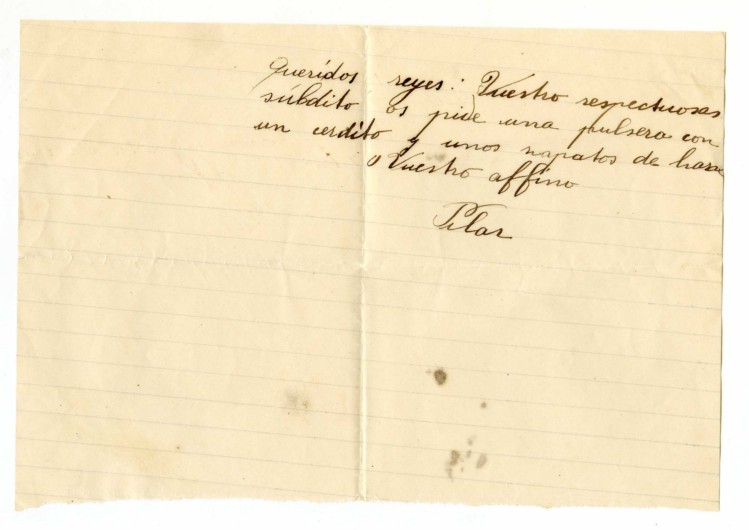 Queridos reyes: Vuestro respectuosas
súbdito os pide una pulsera con
un cerdito y unos zapatos de
Vuestro affino
Pilar